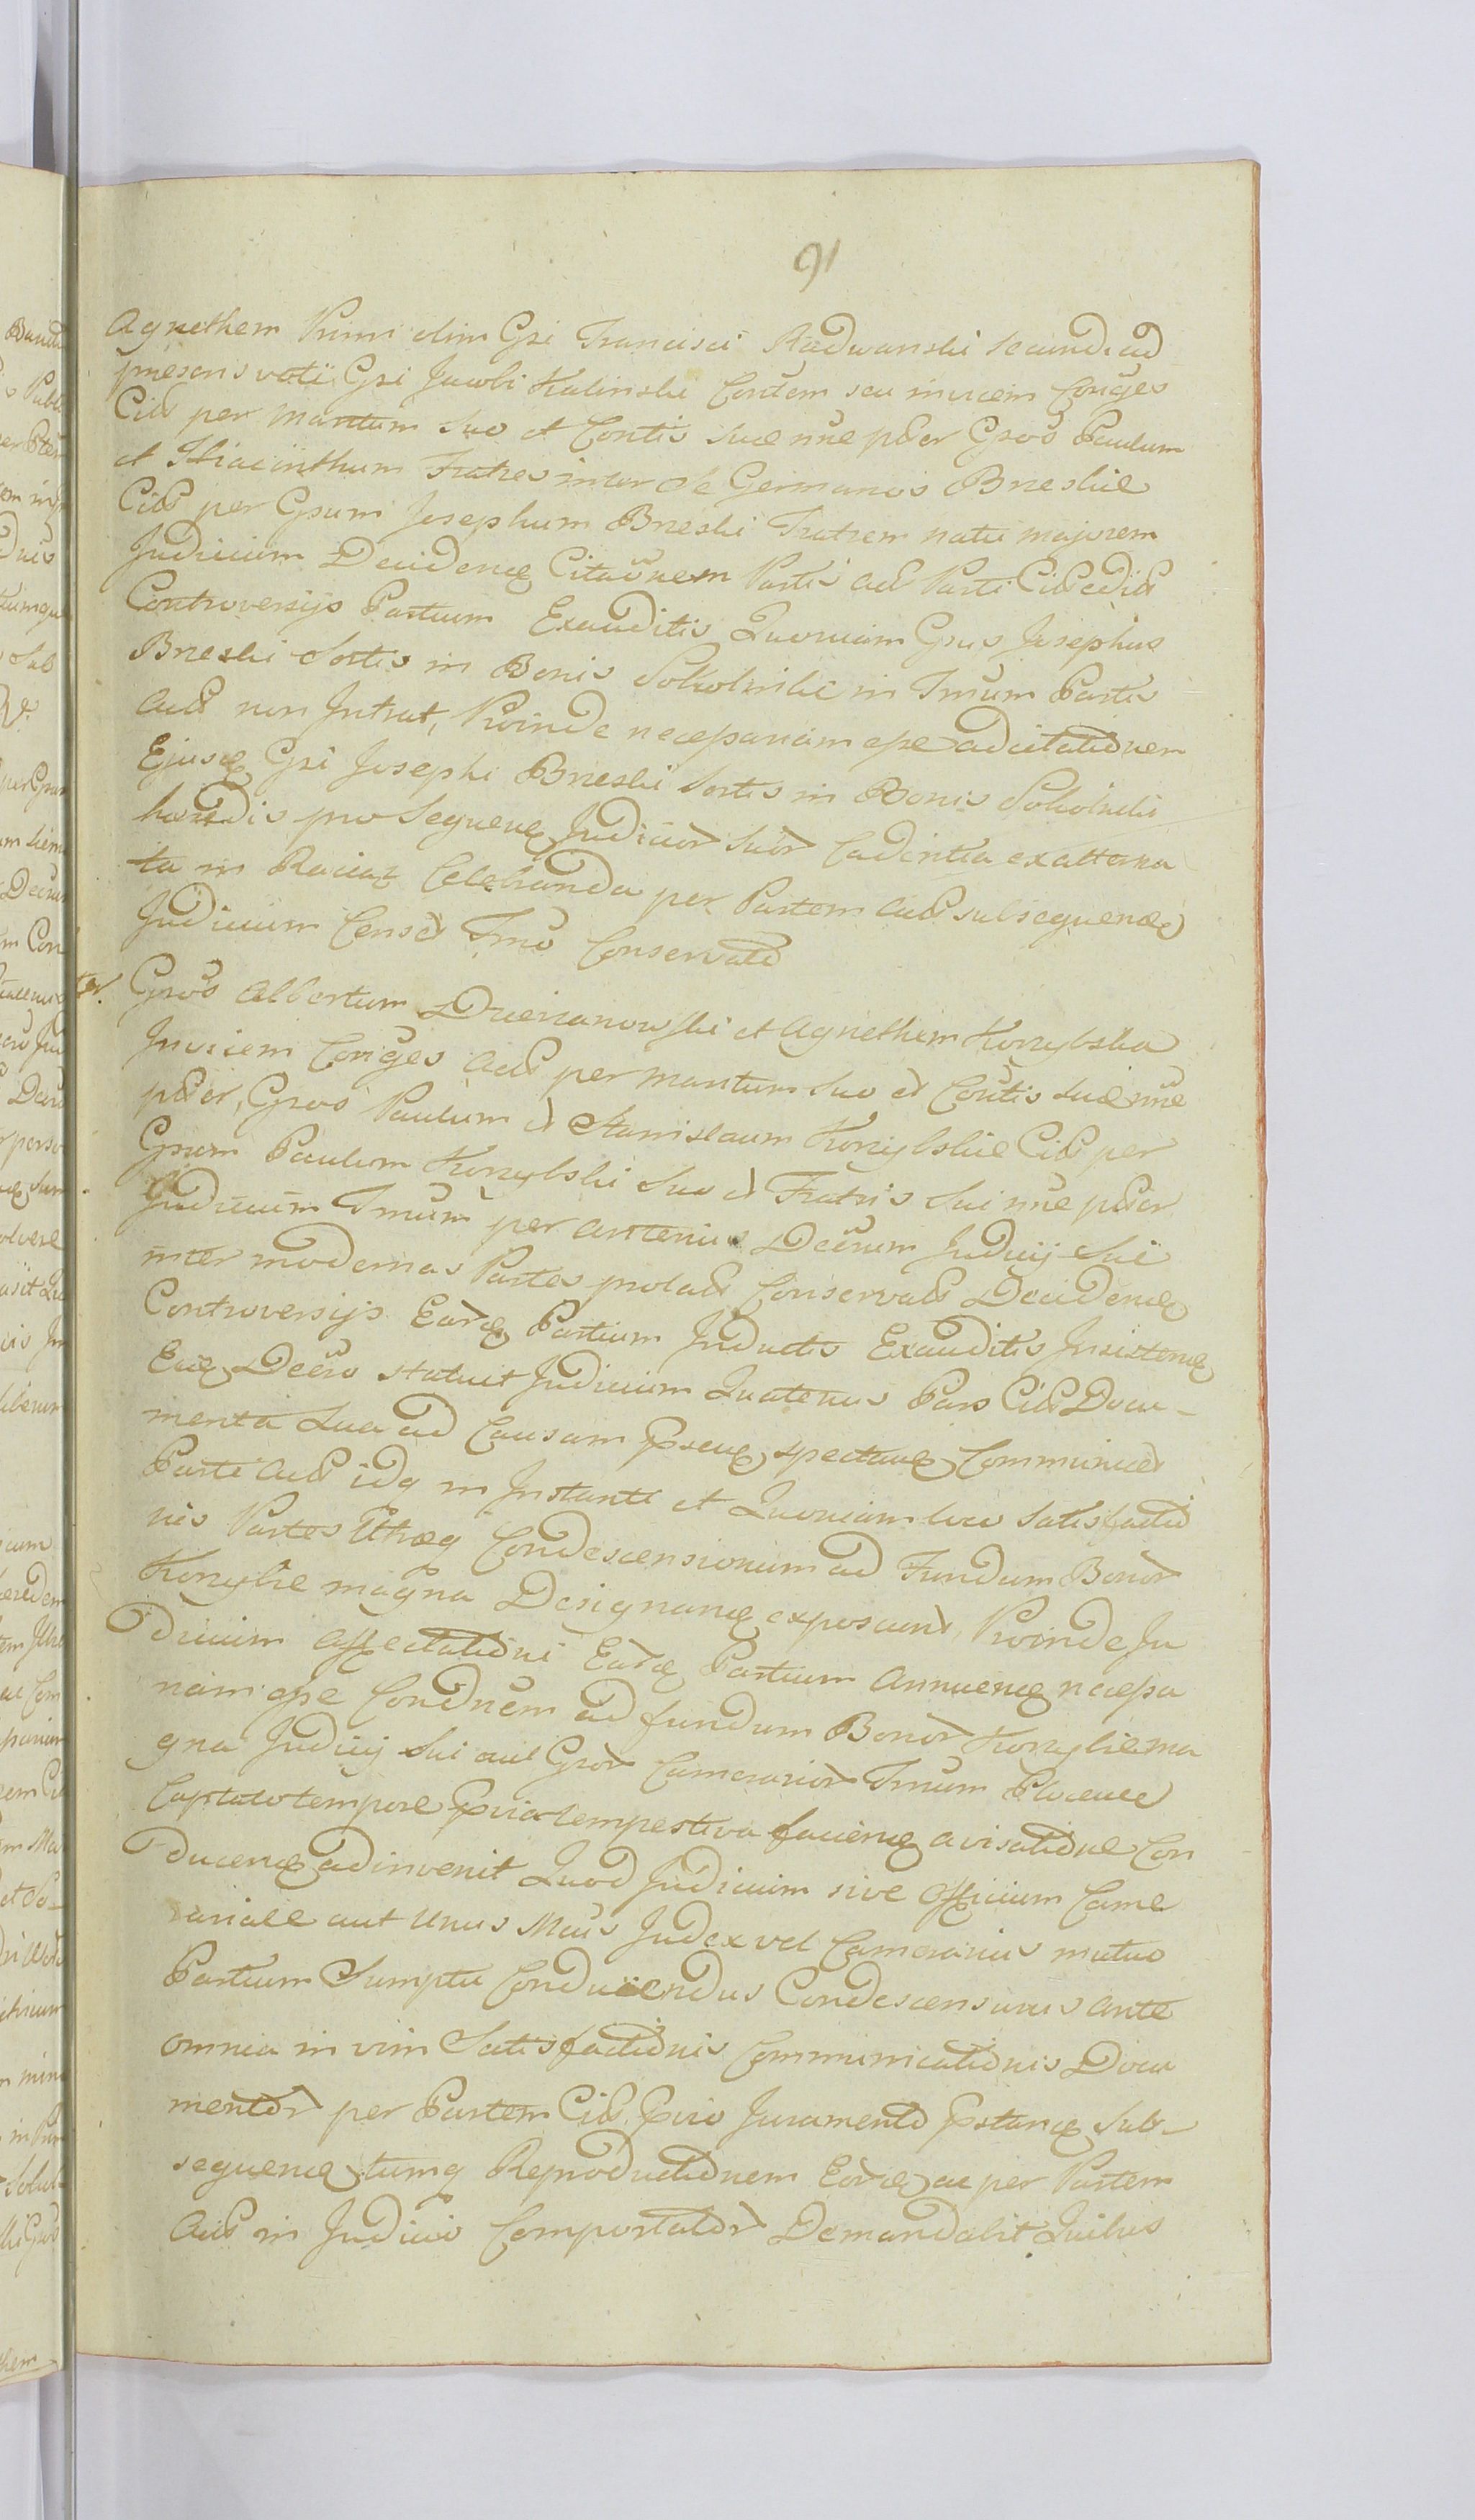 91
Agnethem Primi olim Gsi Francisci Radwanski secundi ad
praesens voti Gsi Jacobi Kalinski Consortem seu invicem Conjges
Cit per Maritum suo et Contis suae nne pter Gsos Paulum
et Hiacinthum Fratres inter se Germanos Bneskie
Cit per Gsum Josephum Bneski Fratrem natu majorem
Judicium Decidenq Citaõnem Partis Act Parti Cit edit
Controversijs Partium Exauditis Quoniam Gsus Josephus
Bneski Sortis in Bonis Sokolniki in Tmum Partis
Act non Intrat, Proinde necessariam esse adcitationem
Ejusq Gsi Josephi Bneski Sortis in Bonis Sokolniki
haeredis pro sequenq Judicior suor Cadentia ex alterna
ta in Raciaz Celebranda per Partem Act subsequenq
Judicium Censet Tmo Conservato
Ter. Gsos Albertum Dzierzanowski et Agnethem Konylska
Invicem Conjges Act per Maritum suo et Contis suae nne
pter, Gsos Paulum et Stanislaum Konylskie Cit per
Gsum Paulum Konylski suo et Fratris sui nne pter
Judicium Tmum per anterius Decrum Judicij sui
inter modernas Partes prolat Conservat Decidenq
Controversijs Earq Partium Inductis Exauditis Insistenq
Eiq Decro statuit Judicium Quatenus Pars Cit Docu-
menta sua ad Causam psenq spectanq Communicet
Parti Act idq in Instanti et Quoniam loco satisfactio
nis Partes Utraeq Condescensionum ad Fundum Bonor
Konylie magna Designanq exposcunt, Proinde Ju
dicium Affectationi Earq Partium Annuenq necessa
riam esse Condnem ad fundum Bonor Konylie ma
gna Judicij sui aut Gsor Camerarior Tmum Plocen
Captato tempore pvia tempestiva facienq avisatione Con
ducenq adinvenit Quod Judicium sive Officium Came
rariale aut Unus Mcus Judex vel Camerarius mutuo
Partium Sumptu Conducendus Condescensurus ante
omnia in vim Satisfactionis Communicationis Docu
mentor per Partem Cit pvio Juramento pstanq sub-
sequenq tumq Reproductionem Eorq ac per Partem
Act in Judicio Comportator Demandabit Quibus